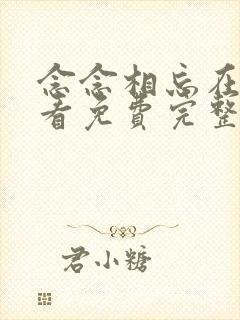 念念相忘在
看免费完整
君小糖